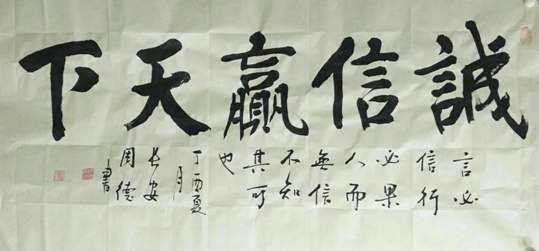 誠信贏天下
言必
信行
必果
人而
無信
不知
其可
也
丁酉夏
月
長安
周德
書